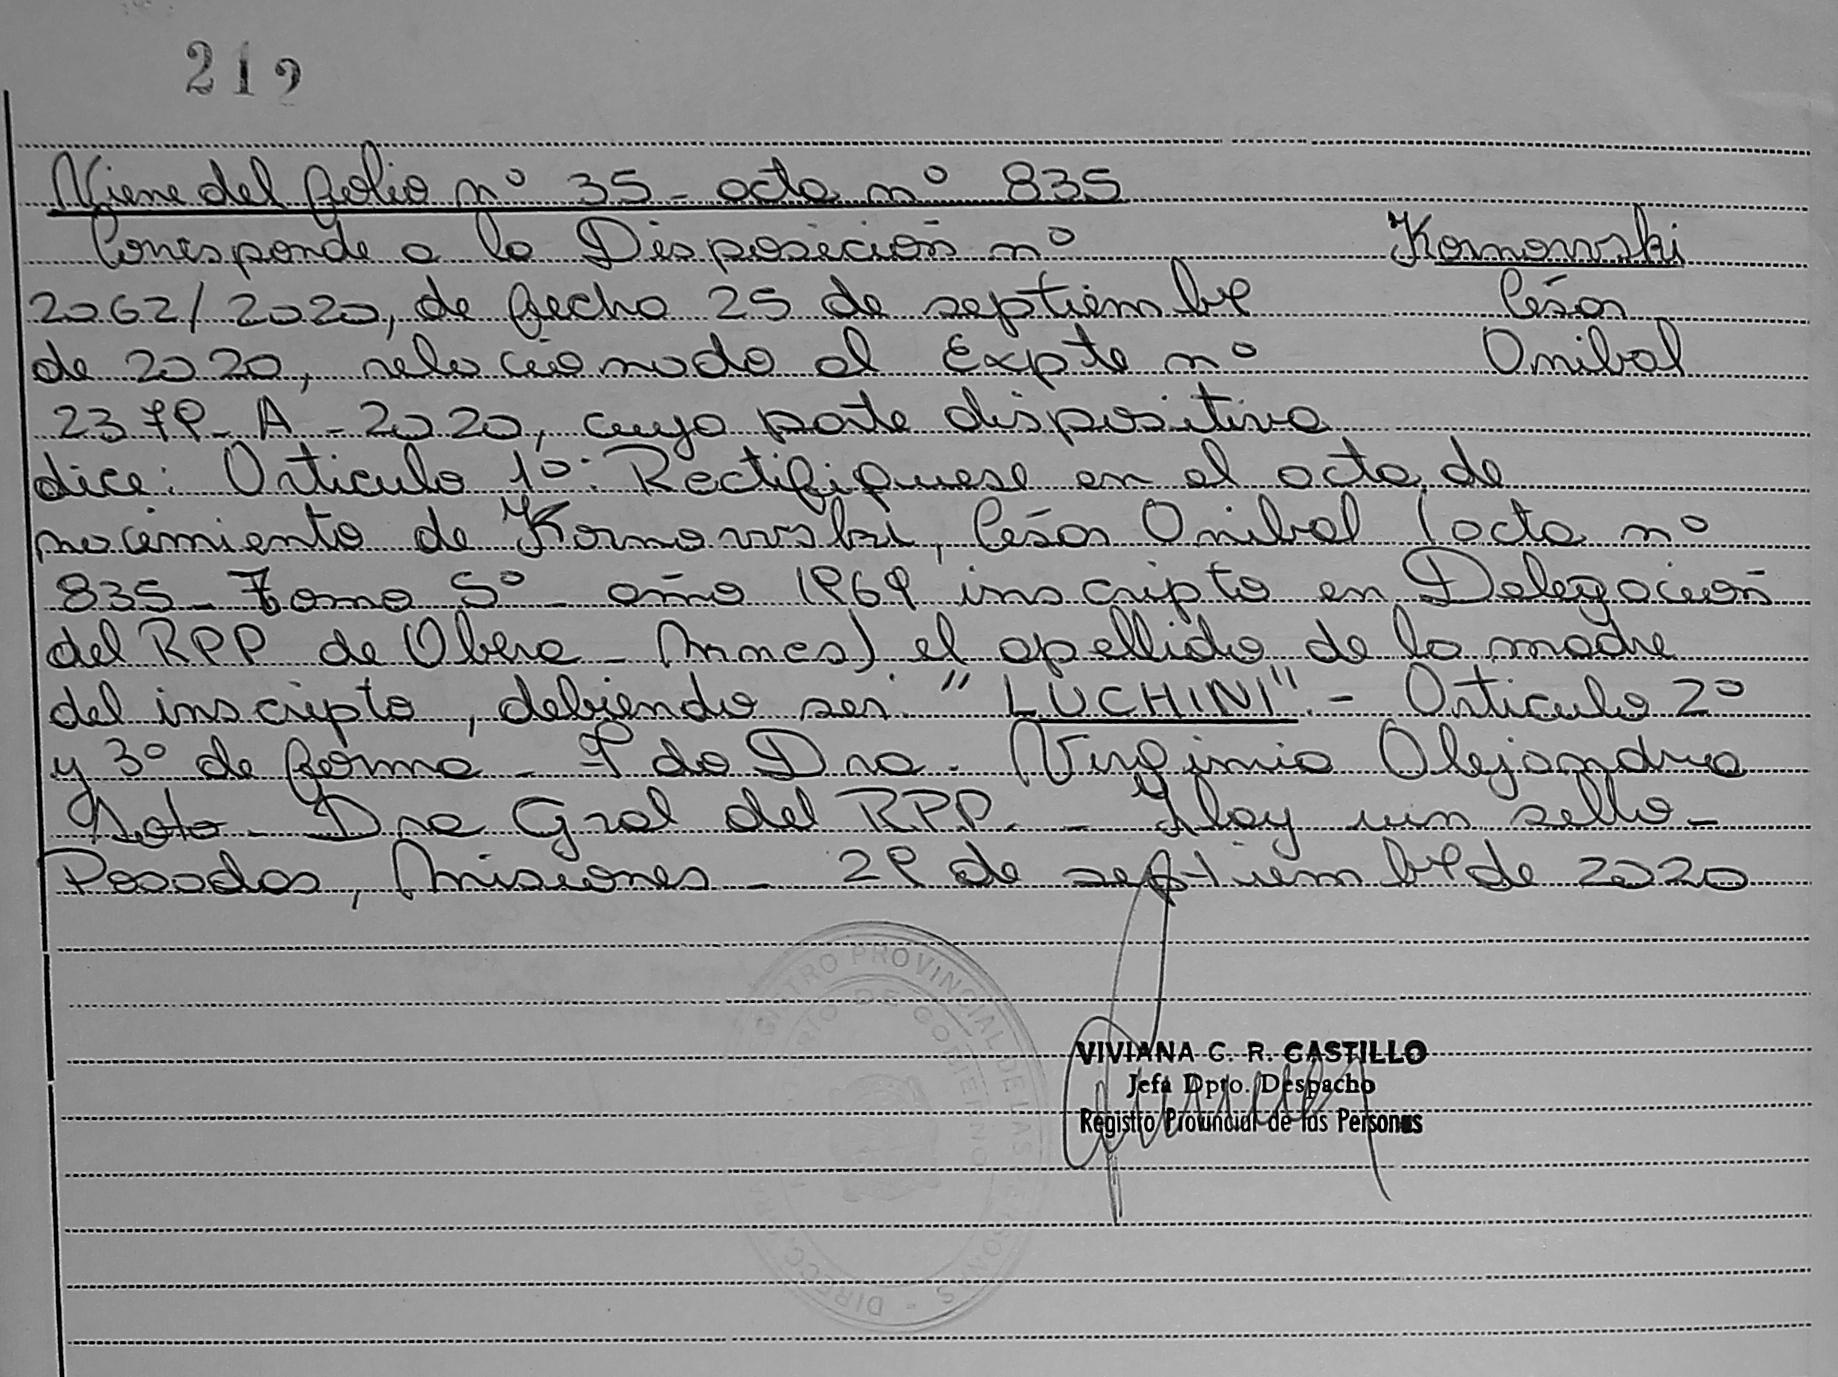 212
Viene del folio nº 35 - acta nº 835
Corresponde a la Disposición nº
2062/2020, de fecha 25 de septiembre
de 2020, relacionado al Expte nº
2379-A-2020, cuya parte dispositiva
dice: Articulo 1º: Rectifiquese en el acta de
nacimiento de Kornowski, César Anibal (acta nº
835 - Tomo 5º - año 1969 inscripto en Delegación
del RPP de Obera - Mnes) el apellido de la madre
del inscripto, debiendo ser "LUCHINI".- Articulo 2º
y 3º de forma - Fdo Dra. Virginia Alejandra
Dra Gral del R.P.P. - Hay un sello -
Posadas, Misiones - 29 de septiembre de 2020
Kornowski
César
Anibal
VIVIANA G. R. CASTILLO
Jefa Dpto. Despacho
Registro Provincial de las Personas
REGISTRO PROVINCIAL DE LAS PERSONAS
DE GOBIERNO